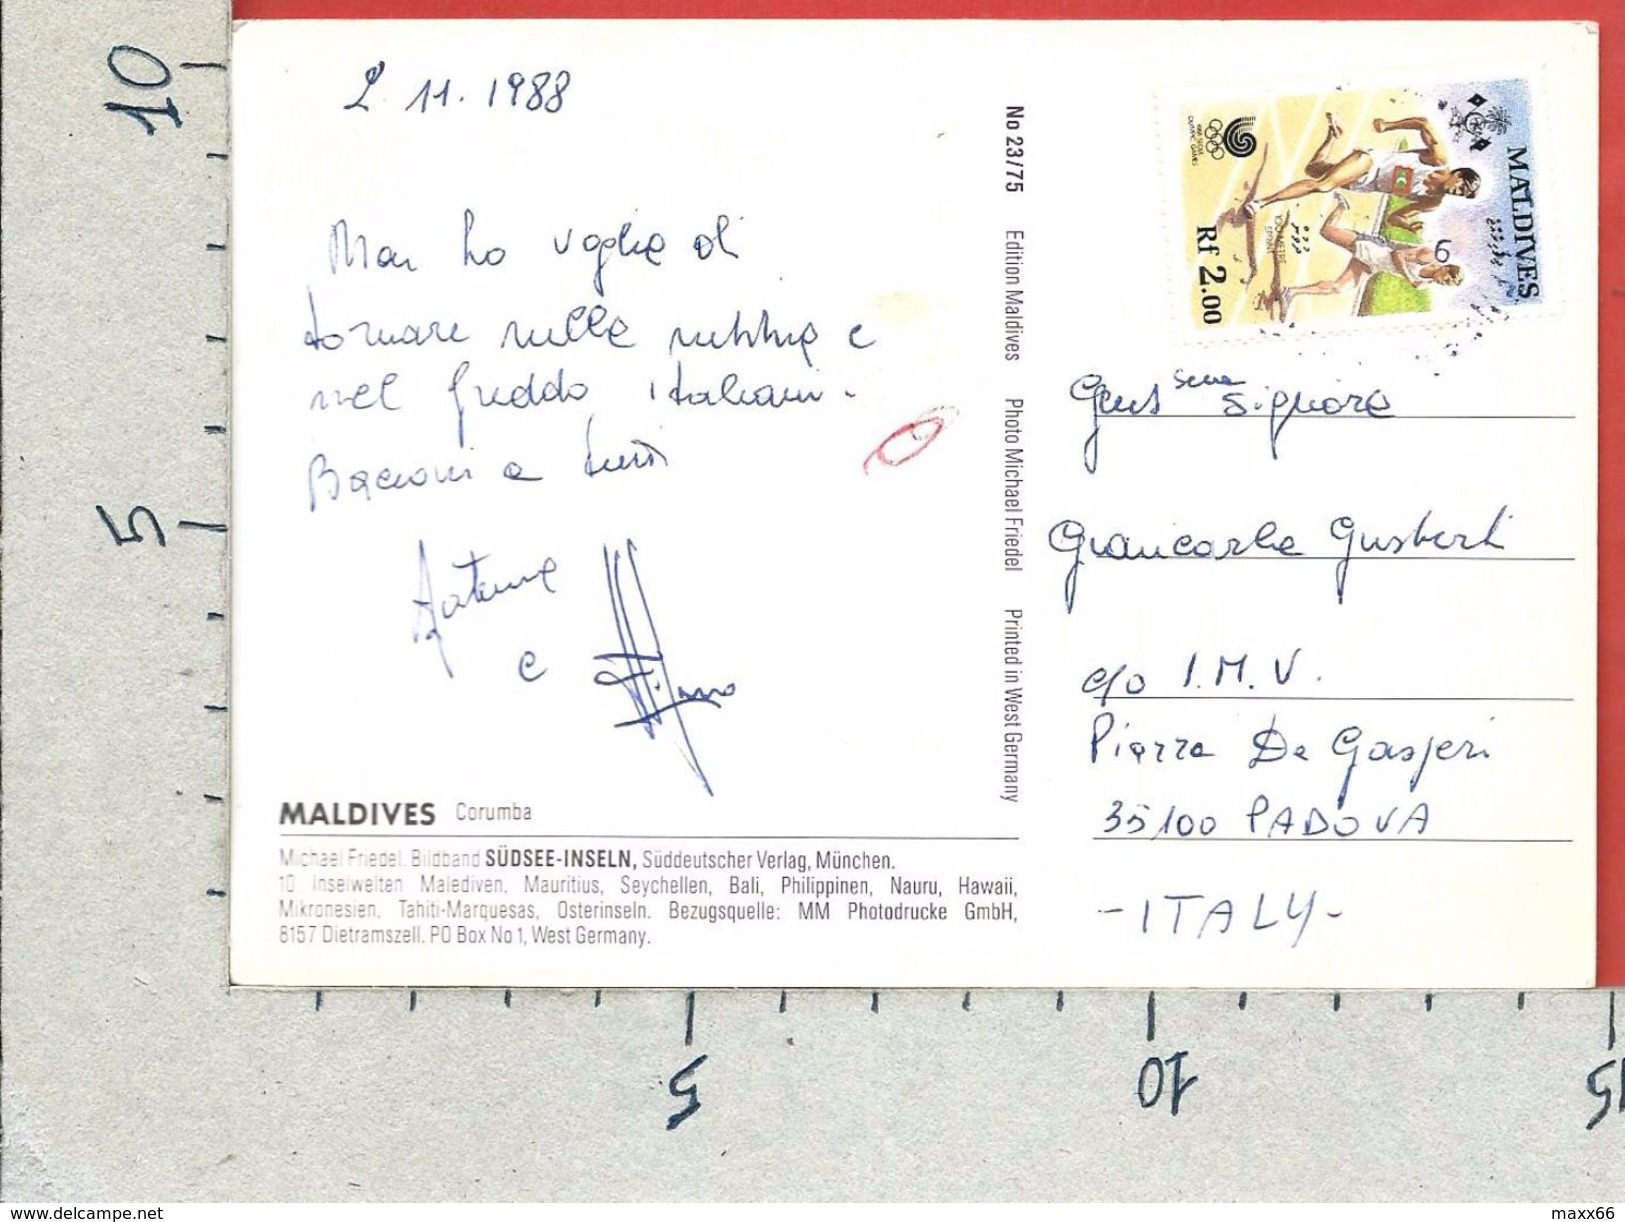 2 11. 1988
Non ho voglia di
tornare nella nebbia e
nel freddo italiani.
Bacioni a tutti
e
MALDIVES Corumba
Michael Friedel. Bildband SÜDSEE-INSELN, Süddeutscher Verlag, München.
10 Inselwelten Malediven, Mauritius, Seychellen, Bali, Philippinen, Nauru, Hawaii,
Mikronesien, Tahiti-Marquesas, Osterinseln. Bezugsquelle: MM Photodrucke GmbH,
8157 Dietramszell. PO Box No 1, West Germany.
No 23/75 Edition Maldives Photo Michael Friedel Printed in West Germany
MALDIVES
100 METRE
SPRINT
Rf 2.00
6
Signora
Giancarla Giusberti
c/o I.M.V.
Piazza De Gasperi
35100 PADOVA
-ITALY-
10
5
5
10
15
www.delcampe.net
maxx66